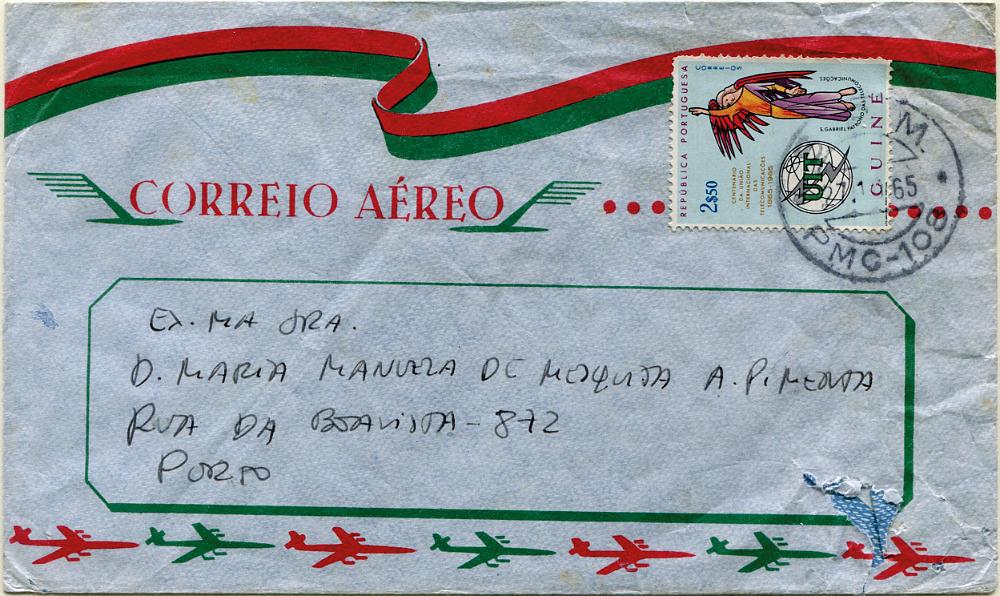 CORREIO AÉREO
REPÚBLICA PORTUGUESA
CORREIOS
2$50
CENTENÁRIO
DA UNIÃO
INTERNACIONAL
DAS
TELECOMUNICAÇÕES
1865-1965
S. GABRIEL PATRONO DAS TELECOMUNICAÇÕES
UIT
GUINÉ
M.
65
PMC-108
EX. MA SRA.
D. MARIA MANUELA DE MESQUITA A. PIMENTA
RUA DA BOAVISTA - 872
PORTO